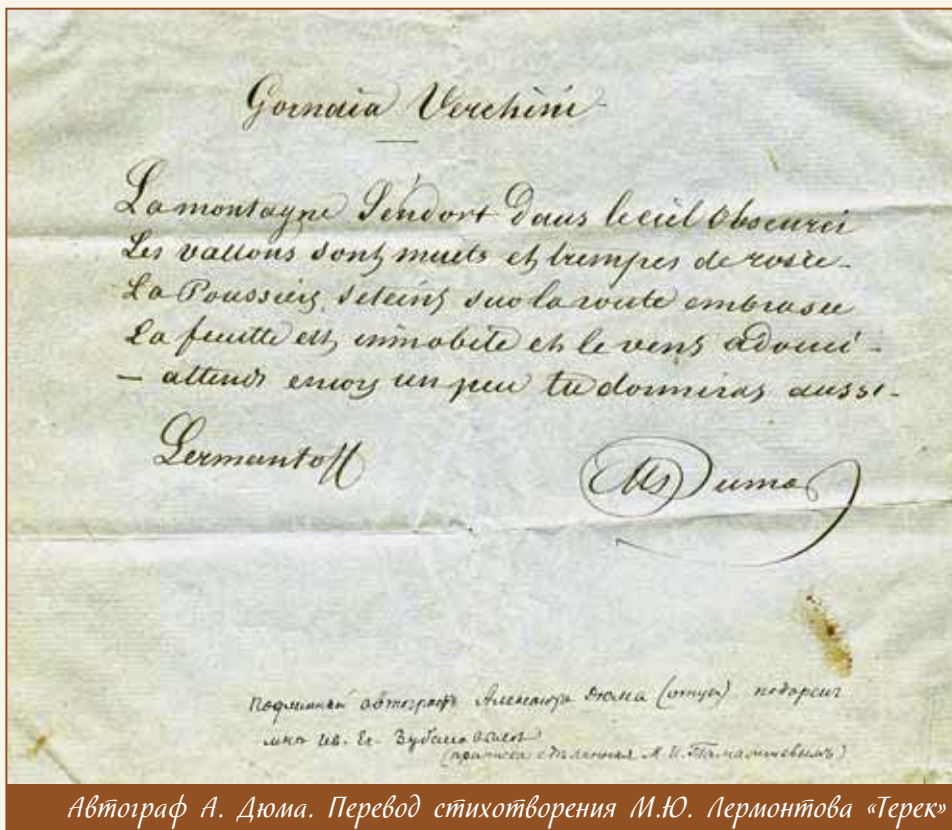 Gornaia Verchini
La montagne S'endort Dans le ciel Obscurci
Les vallons sont muets et trempes de rosée-
La Poussiere s'eteint sur la route embrasee
La feuille est immobile et le vent adouci-
— attends encore un peu tu dormiras aussi-
Lermantoff
Als Dumas
Подлинный автографъ Александра Дюма (отца) подарен
мне Ив. Ег.
(приписка сделанная М. И. Тамамшевымъ)
Автограф А. Дюма. Перевод стихотворения М.Ю. Лермонтова «Терек»